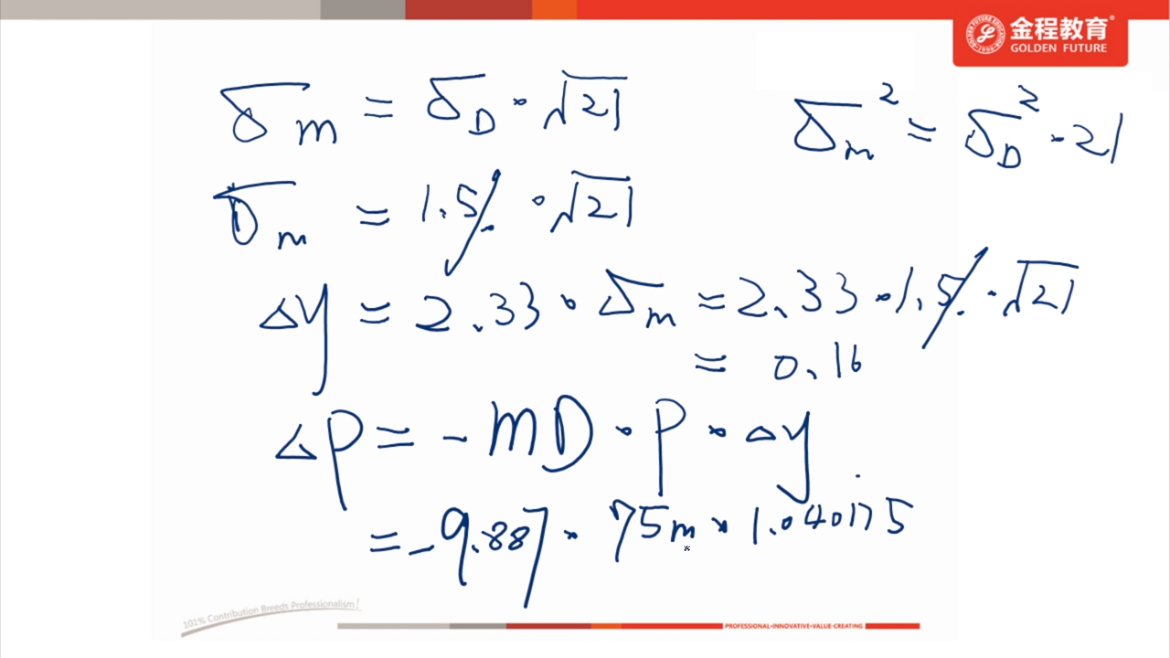 金程教育®
GOLDEN FUTURE
σm = σD · √21
σm² = σD² · 21
σm = 1.5% · √21
Δy = 2.33 · σm = 2.33 · 1.5% · √21
= 0.16
ΔP = -MD · P · Δy
= -9.887 · 75m · 1.040175
101% Contribution Breeds Professionalism!
PROFESSIONAL·INNOVATIVE·VALUE-CREATING